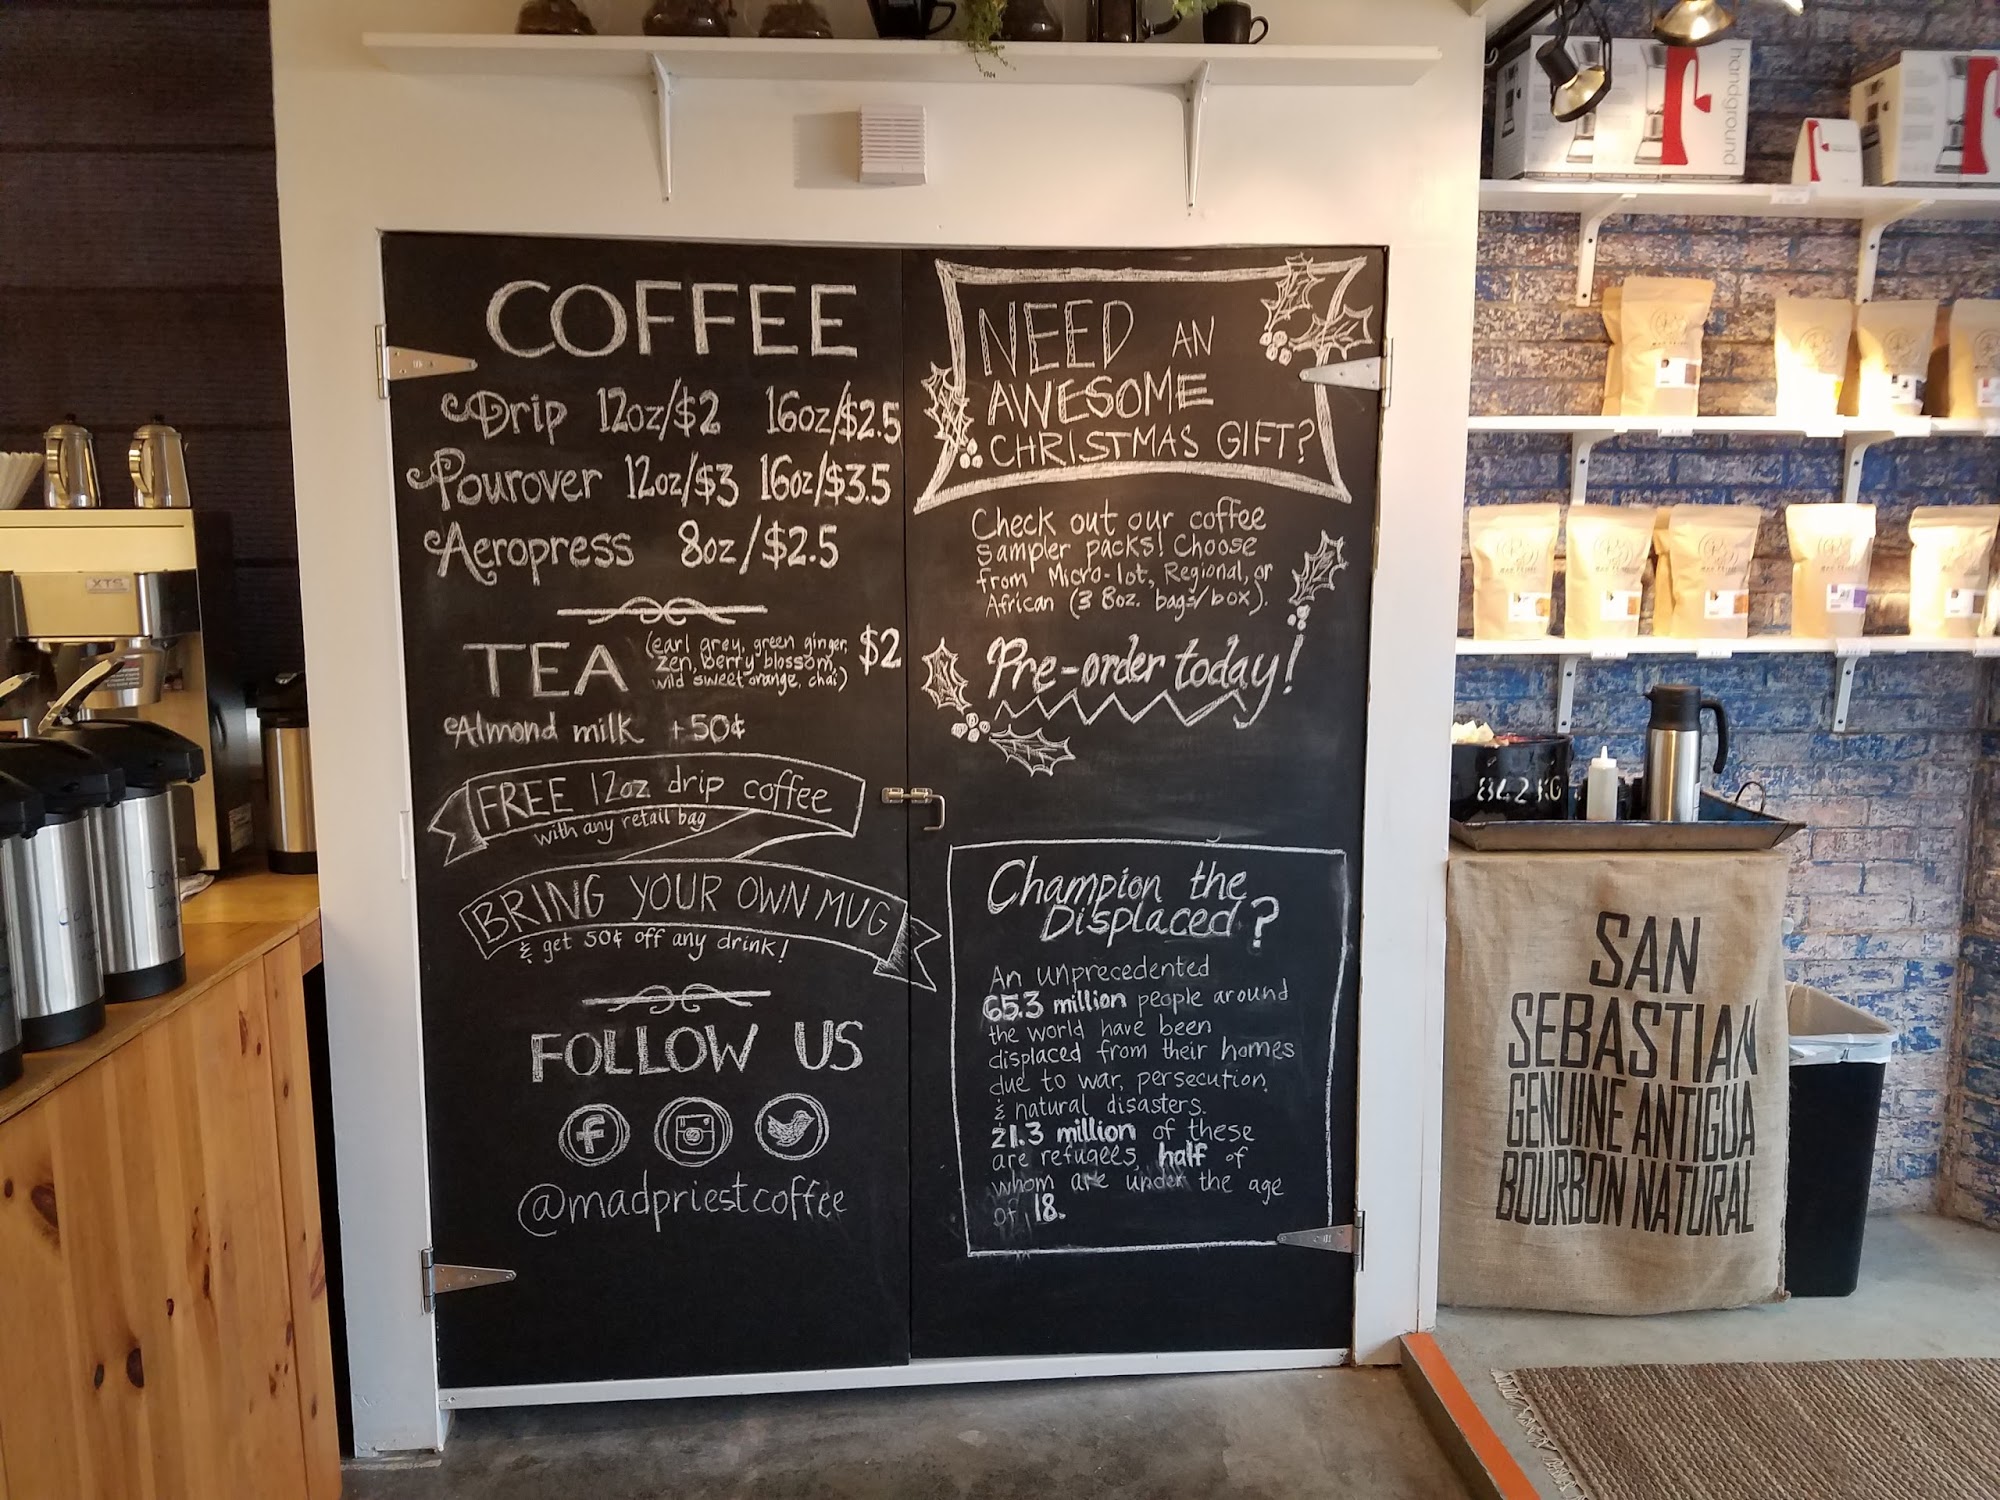 COFFEE
Drip 12oz/$2 16oz/$2.5
Pourover 12oz/$3 16oz/$3.5
Aeropress 8oz/$2.5
TEA (earl grey, green ginger, $2
zen, berry blossom,
wild sweet orange, chai)
Almond milk +50¢
FREE 12oz drip coffee
with any retail bag
BRING YOUR OWN MUG
& get 50¢ off any drink!
FOLLOW US
@madpriestcoffee
NEED AN
AWESOME
CHRISTMAS GIFT?
Check out our coffee
sampler packs! Choose
from Micro-lot, Regional, or
African (3 8oz. bags/box).
Pre-order today!
Champion the
Displaced?
An unprecedented
65.3 million people around
the world have been
displaced from their homes
due to war, persecution,
& natural disasters.
21.3 million of these
are refugees, half of
whom are under the age
of 18.
handground
842 KG
SAN
SEBASTIAN
GENUINE ANTIGUA
BOURBON NATURAL
XTS